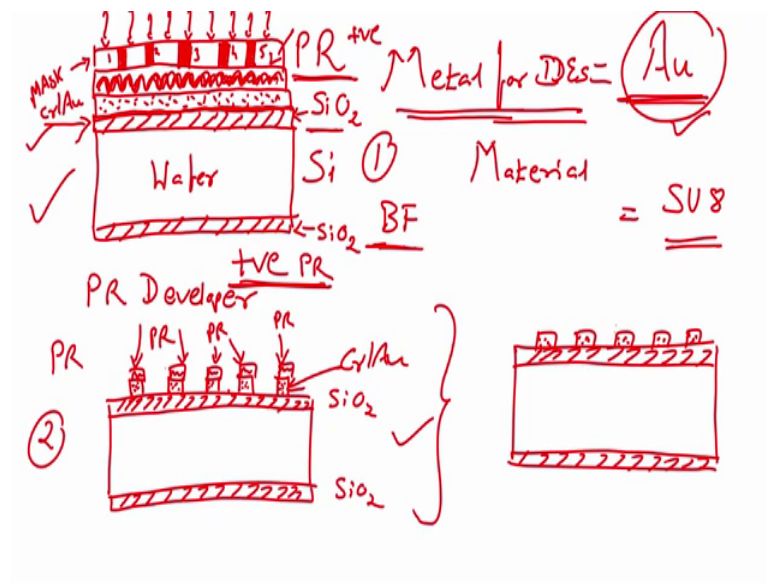 PR +ve
MASK
Cr/Au
1 2 3 4 5
SiO2
Wafer
Si ①
SiO2
BF
Metal for IDEs = Au
Material
= SU8
+ve PR
PR Developer
PR PR PR
PR
Cr/Au
②
SiO2
SiO2